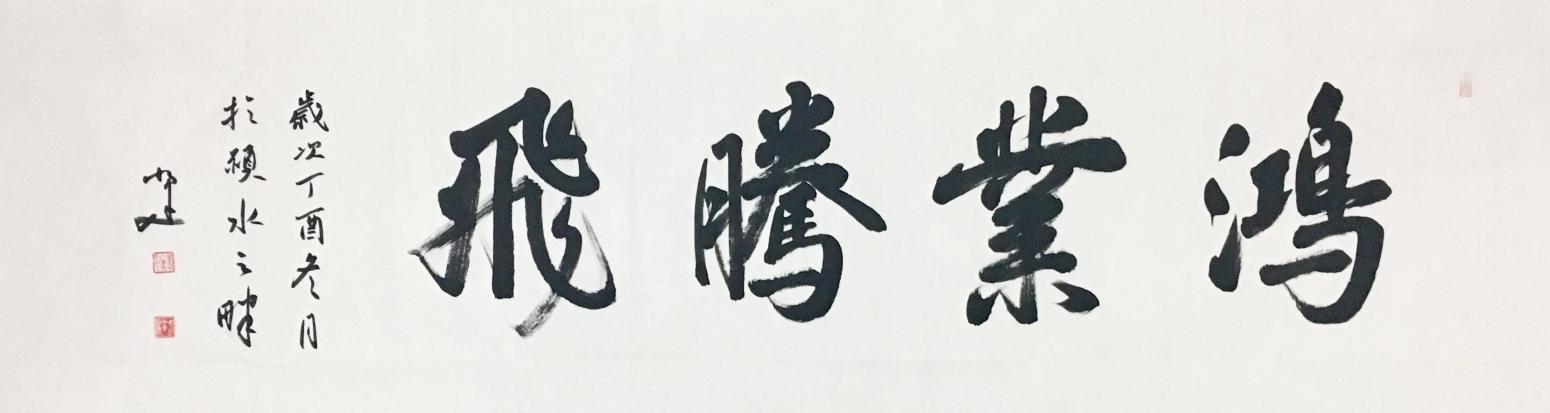 鴻業騰飛
歲次丁酉冬月
於潁水之畔